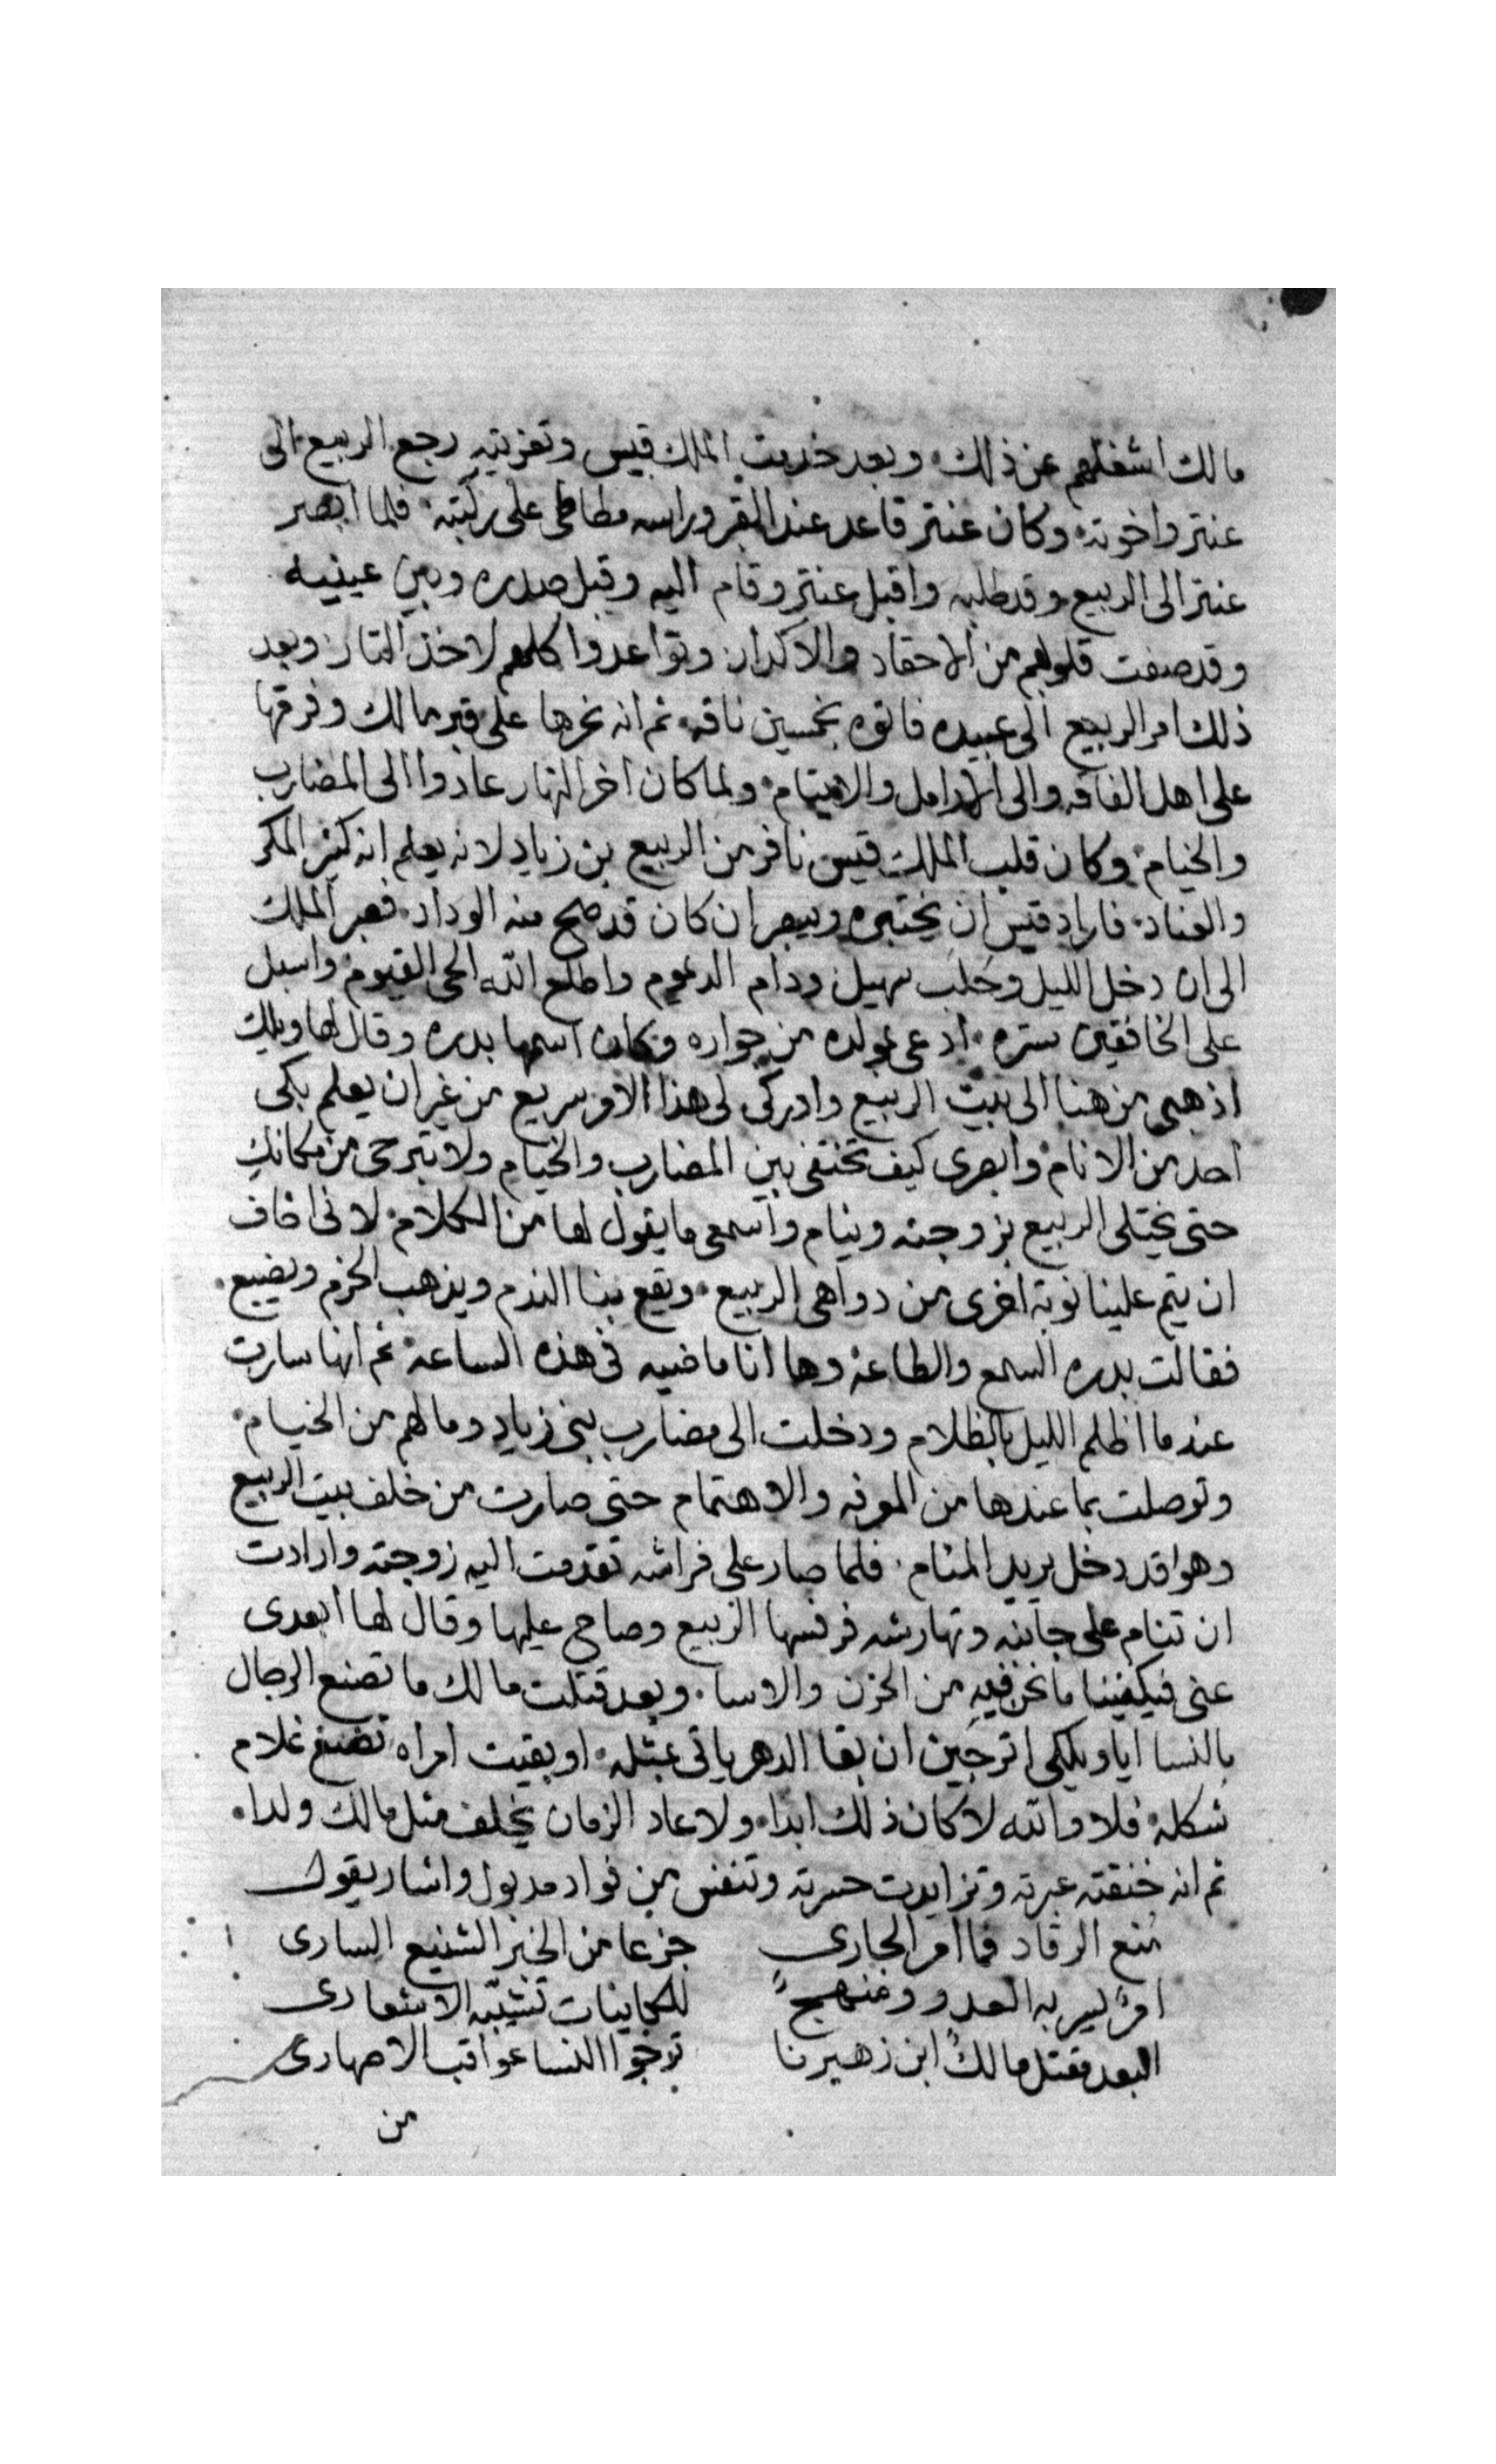 مالك اشغلهم عن ذلك وبعد خدمت الملك قيس وتعزيته رجع الربيع الى
عنتر واخوته وكان عنتر قاعد عند القبر وراسه مطاطى على ركبته فلما ابصر
عنتر الى الربيع وقد طلبه واقبل عنتر وقام اليه وقبل صدره وبين عينيه
وقد صفت قلوبهم من الاحقاد والاكدار وتواعدوا كلهم لاخذ التار وبعد
ذلك امر الربيع الى عبيده فاتوه بخمسين ناقه ثم انه نحرها على قبر مالك وفرقها
على اهل الفاقه والى الارامل والايتام ولما كان اخر النهار عادوا الى المضارب
والخيام وكان قلب الملك قيس نافر من الربيع بن زياد لانه يعلم انه كثير المكر
والعناد فاراد قيس ان يختبره ويبصر ان كان قد صح منه الوداد فصبر الملك
الى ان دخل الليل وحلب سهيل ودام الديموم واطلع الله الحى القيوم واسبل
على الخافقين ستره ادعى بمولده من جواره وكان اسمها بدره وقال لها ويلك
اذهبى من هنا الى بيت الربيع وادركى لى هذا الامر سريع من غير ان يعلم بكى
احد من الانام وابصرى كيف تختفى بين المضارب والخيام ولا تبرحى من مكانك
حتى يختلى الربيع بزوجته وينام واسمعى ما يقول لها من الكلام لانى اخاف
ان يتم علينا نوبة اخرى من دواهى الربيع ويقع بنا الندم ويذهب الحزم ويضيع
فقالت بدره السمع والطاعة وها انا ماضيه فى هذه الساعة ثم انها سارت
عندما اظلم الليل بالظلام ودخلت الى مضارب بنى زياد وما لهم من الخيام
وتوصلت بما عندها من المعرفه والاهتمام حتى صارت من خلف بيت الربيع
وهو اقد دخل يريد المنام فلما صار على فراشه تقدمت اليه زوجته وارادت
ان تنام على جانبه وتهارشه فرفسها الربيع وصاح عليها وقال لها ابعدى
عنى فيكفينا ما نحن فيه من الحزن والاسا وبعد قتلت مالك ما تصنع الرجال
بالنسا ايا ويلكى اترجين ان بقا الدهر ياتى بمثله او بقيت امراه تضع غلام
شكله فلا والله لا كان ذلك ابدا ولا عاد الزمان يخلف مثل مالك ولدا
ثم انه خنقته عبرته وتزايدت حسرته وتنفس من فواد مدبول واشار يقول
منع الرقاد فما امر الجارى جزعا من الخبر الشنيع السارى
امرًا يسر به العدو ومنهج للكاينات تشيبه الاشعارى
البعد مقتل مالك ابن زهيرنا ترجوا النسا عواقب الاصهارى
من